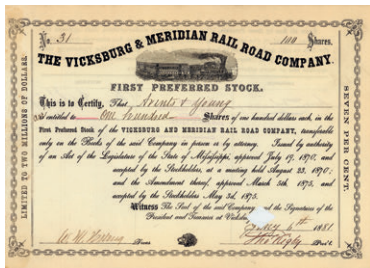 No. 31 100 Shares.
THE VICKSBURG & MERIDIAN RAIL ROAD COMPANY.
FIRST PREFERRED STOCK.
This is to Certify, That & Young
is entitled to One hundred Shares of one hundred dollars each, in the
First Preferred Stock of the VICKSBURG AND MERIDIAN RAIL ROAD COMPANY, transferable
only on the Books of the said Company in person or by attorney. Issued by authority
of an Act of the Legislature of the State of Mississippi, approved July 17, 1870; and
accepted by the Stockholders, at a meeting held August 23, 1870;
and the Amendment thereof, approved March 5th, 1875, and
accepted by the Stockholders May 3d, 1875.
Witness The Seal of the said Company and the Signatures of the
President and Treasurer at
6th 1881
Treas. Pres't.
LIMITED TO TWO MILLIONS OF DOLLARS.
SEVEN PER CENT.